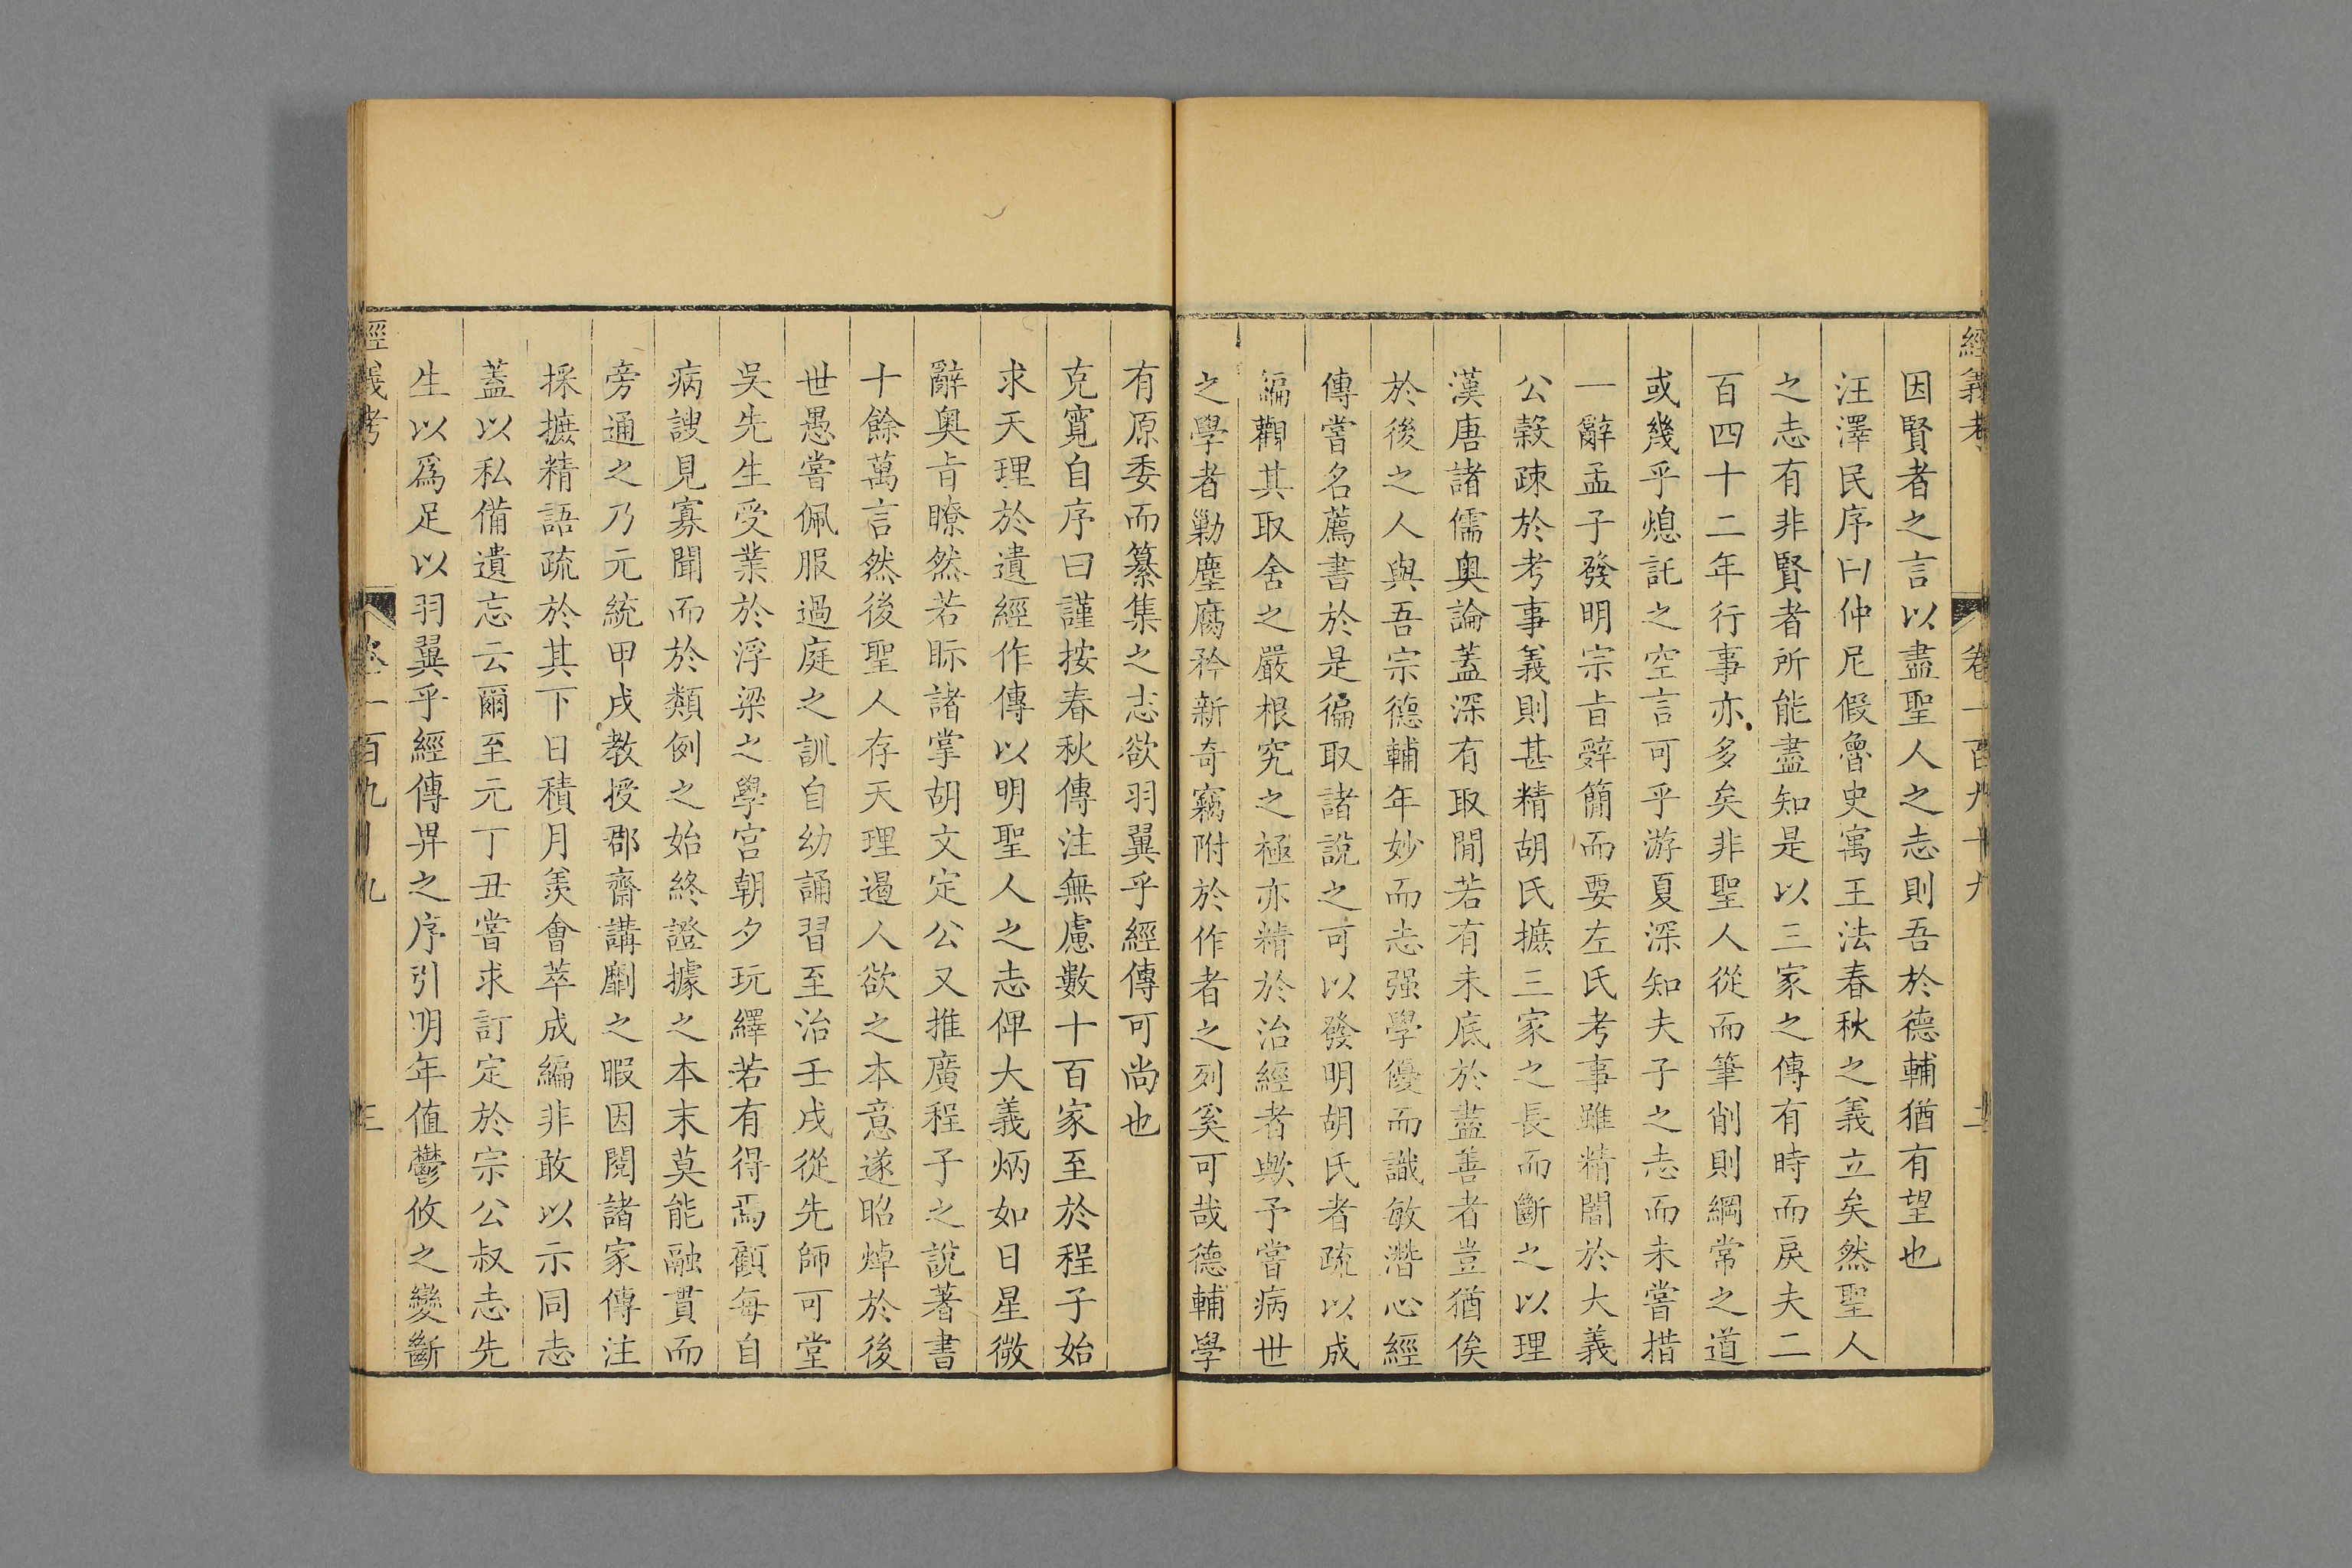 經義考
卷一百九十九
二
因賢者之言以盡聖人之志則吾於德輔猶有望也
汪澤民序曰仲尼假魯史寓王法春秋之義立矣然聖人
之志有非賢者所能盡知是以三家之傳有時而戾夫二
百四十二年行事亦多矣非聖人從而筆削則綱常之道
或幾乎熄託之空言可乎游夏深知夫子之志而未嘗措
一辭孟子發明宗旨辭簡而要左氏考事雖精闇於大義
公穀疎於考事義則甚精胡氏摭三家之長而斷之以理
漢唐諸儒奧論蓋深有取閒若有未底於盡善者豈猶俟
於後之人與吾宗德輔年妙而志强學優而識敏潛心經
傳嘗名薦書於是徧取諸說之可以發明胡氏者疏以成
編觀其取舍之嚴根究之極亦精於治經者歟予嘗病世
之學者勦塵腐矜新奇竊附於作者之列奚可哉德輔學
有原委而纂集之志欲羽翼乎經傳可尚也
克寬自序曰謹按春秋傳注無慮數十百家至於程子始
求天理於遺經作傳以明聖人之志俾大義炳如日星微
辭奧旨瞭然若眎諸掌胡文定公又推廣程子之說著書
十餘萬言然後聖人存天理遏人欲之本意遂昭焯於後
世愚嘗佩服過庭之訓自幼誦習至治壬戌從先師可堂
吳先生受業於浮梁之學宮朝夕玩繹若有得焉顧每自
病謏見寡聞而於類例之始終證據之本末莫能融貫而
旁通之乃元統甲戌教授郡齋講劘之暇因閱諸家傳注
採摭精語疏於其下日積月羨會萃成編非敢以示同志
蓋以私備遺忘云爾至元丁丑嘗求訂定於宗公叔志先
生以爲足以羽翼乎經傳畀之序引明年值鬱攸之變斷
經義考
卷一百九十九
三